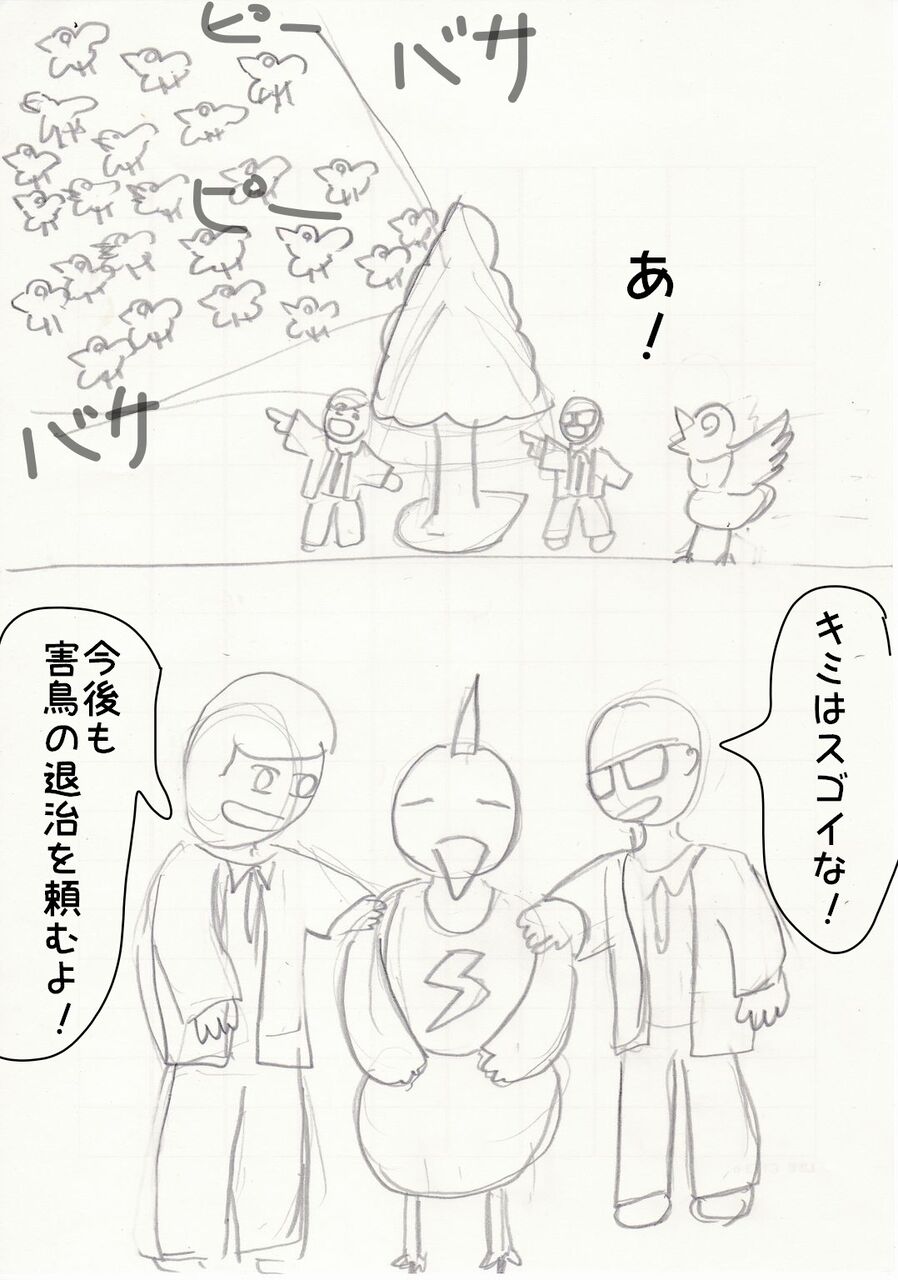 ピー
バサ
ピー
バサ
あ！
キミはスゴイな！
今後も
害鳥の退治を頼むよ！